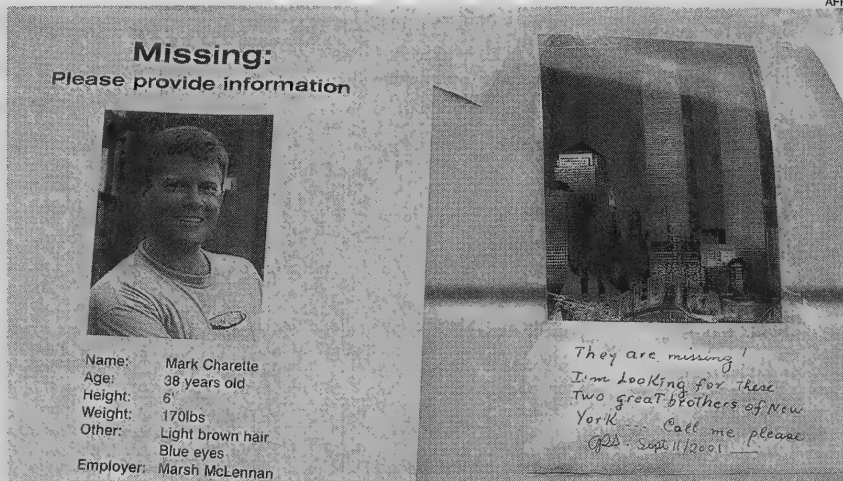 Missing:
Please provide information
Name: Mark Charette
Age: 38 years old
Height: 6'
Weight: 170lbs
Other: Light brown hair
Blue eyes
Employer: Marsh McLennan
They are missing!
I'm Looking for These
Two great brothers of New
York... Call me please
Sept 11/2001